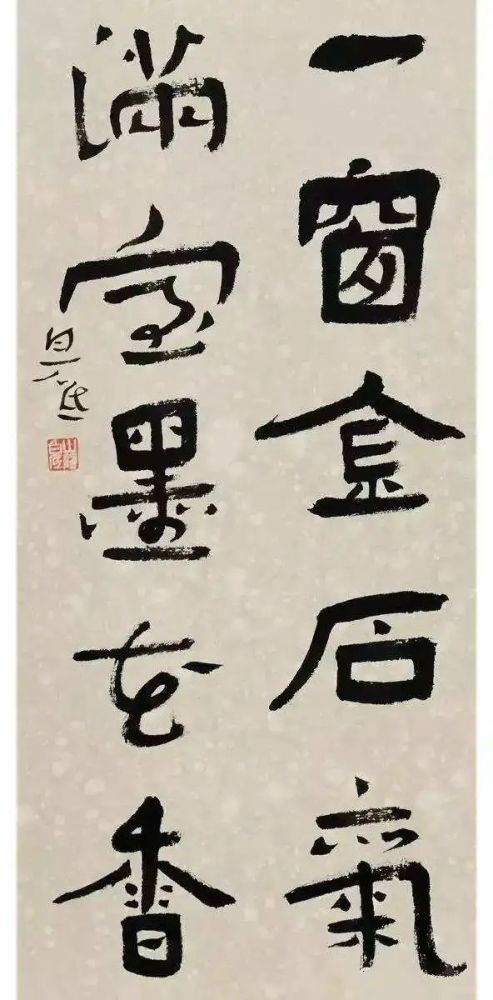 一窗金石氣
滿室墨花香
白砥